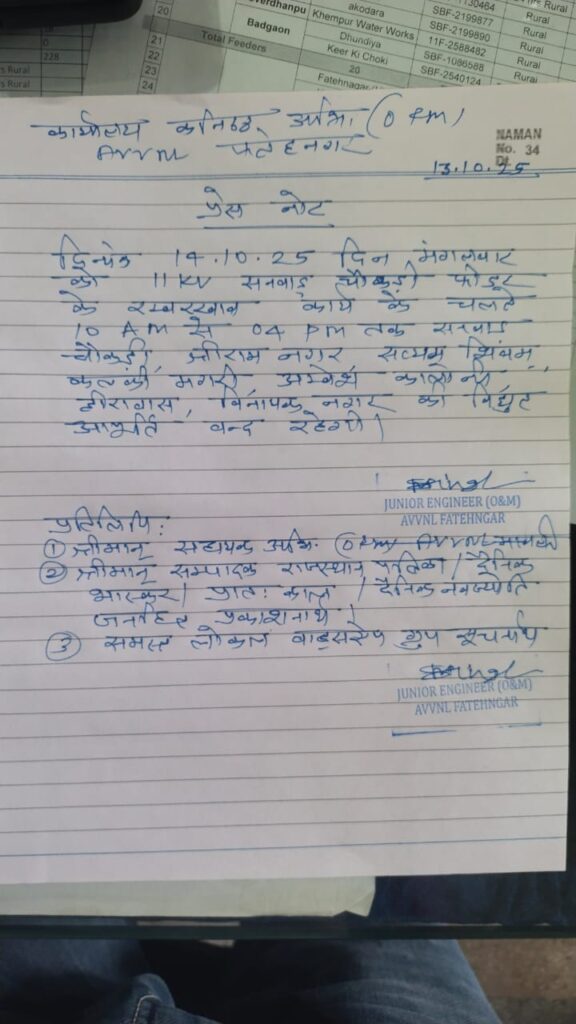 20
21
22
23
24
228
s Rural
Badgaon
Total Feeders
akodara
Khempur Water Works
Dhundiya
Keer Ki Choki
20
SBF-2199877
SBF-2199890
11F-2588482
SBF-1086588
SBF-2540124
Rural
Rural
Rural
Rural
Rural
कार्यालय कनिष्ठ अभि. (O &M)
AVVNL फतहनगर
NAMAN
No. 34
Dt.
13.10.25
प्रेस नोट
दिनांक 14.10.25 दिन मंगलवार
को 11 KV सनवाड़ चौकड़ी फीडर
के रखरखाव कार्य के चलते
10 AM से 04 PM तक सनवाड़
चौकड़ी, श्रीराम नगर, सत्यम् शिवम्,
मगरी, कालोनी,
विनायक नगर की विद्युत
आपूर्ति बन्द रहेगी।
JUNIOR ENGINEER (O&M)
AVVNL FATEHNGAR
प्रतिलिपि:
① श्रीमान् सहायक अभि. (O&M) AVVNL मावली
② श्रीमान् सम्पादक राजस्थान पत्रिका / दैनिक
भास्कर / प्रातः काल / दैनिक नवज्योति
जनहित प्रकाशनार्थ।
③ समस्त लोकल वाट्सएप ग्रुप सूचनार्थ
JUNIOR ENGINEER (O&M)
AVVNL FATEHNGAR